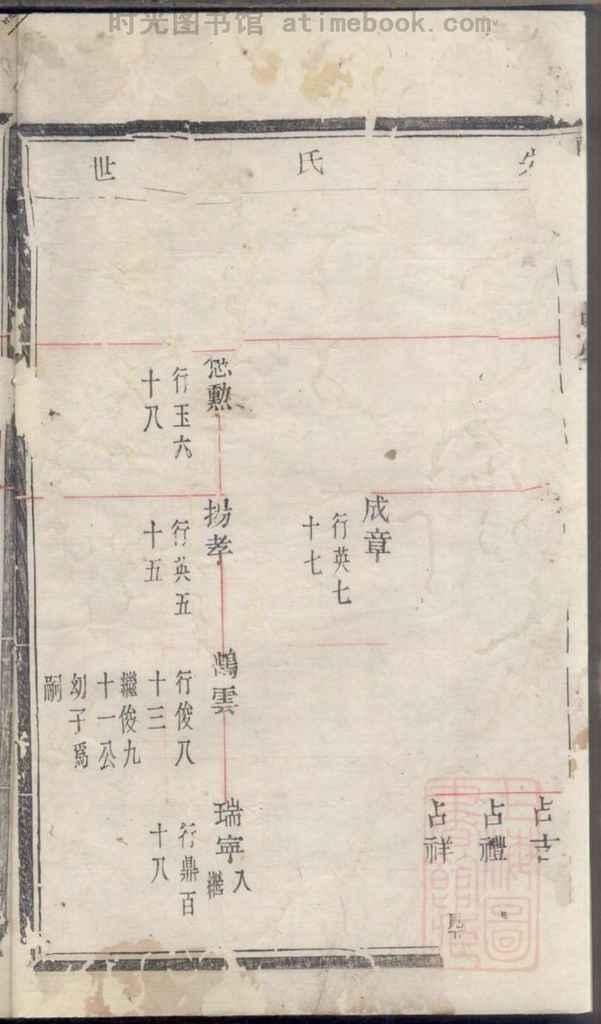 时光图书馆 atimebook.com
氏
世
占吉
占禮
占祥
成章
行英七
十七
勲
行玉六
十八
揚孝
行英五
十五
鴻雲
行俊八
十三
繼俊九
十一公
幼子爲
嗣
瑞寧
入
繼
行鼎百
十八